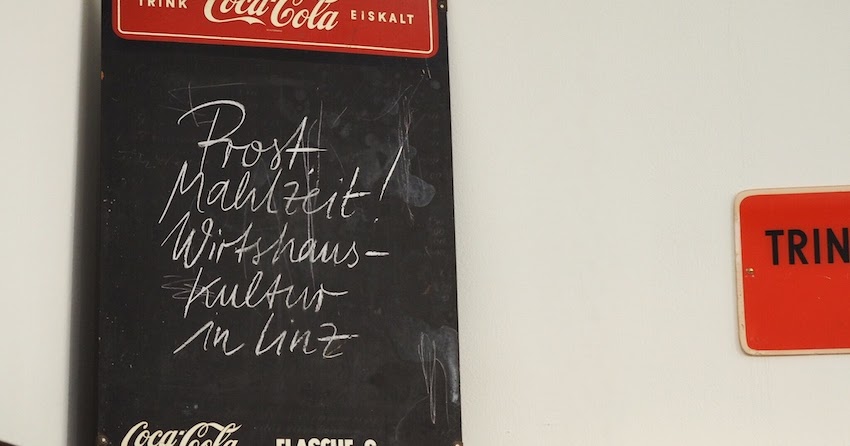 TRINK Coca-Cola EISKALT
Prost
Mahlzeit!
Wirtshaus-
Kultur
in Linz
Coca-Cola
TRIN